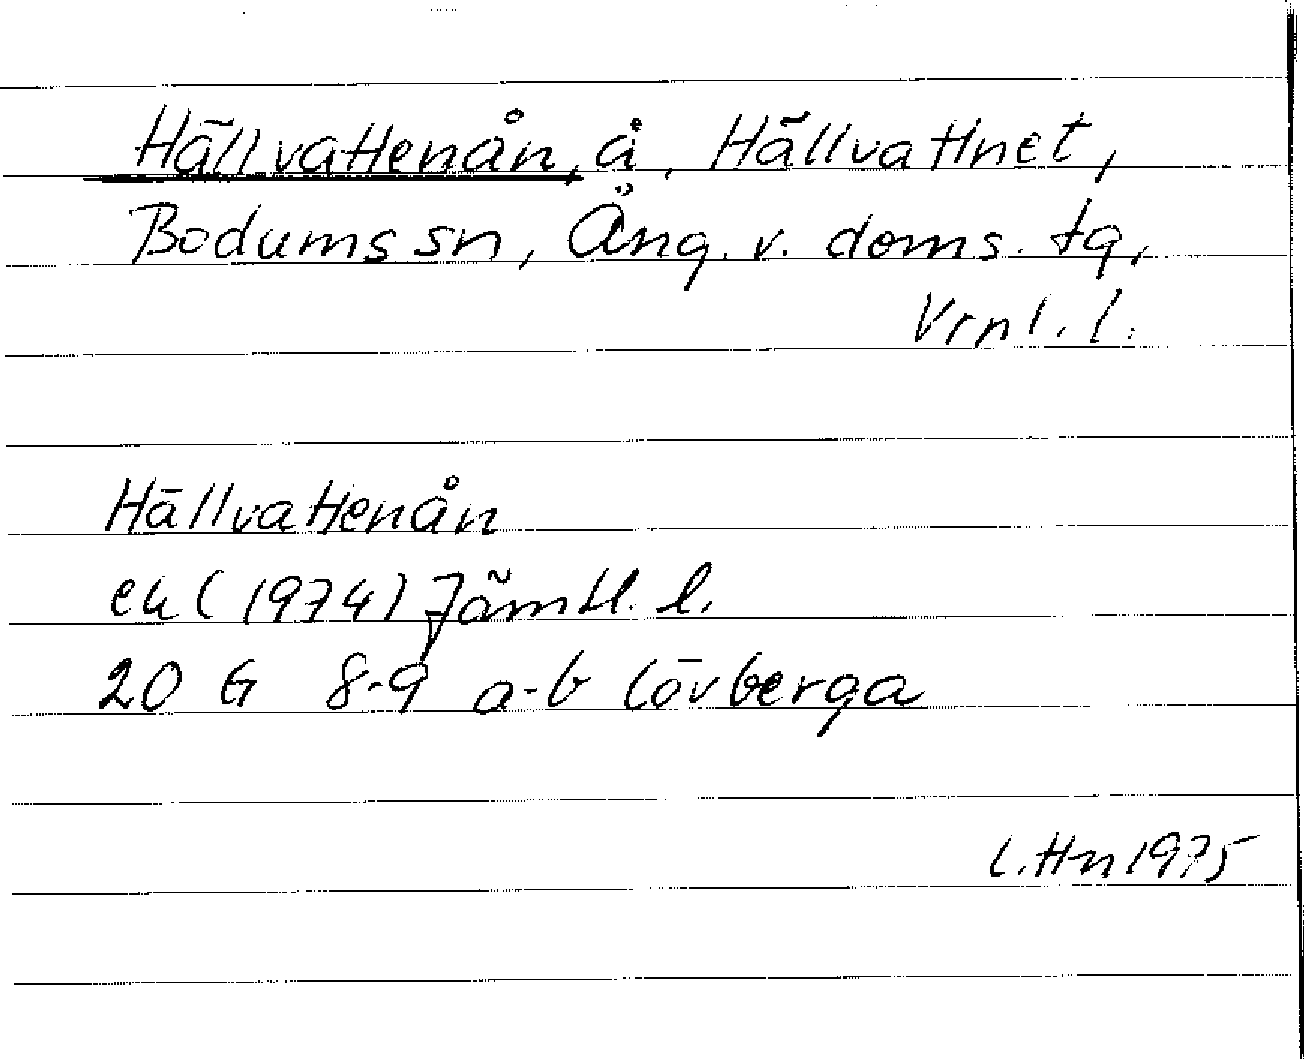 Hällvattenån, å, Hällvattnet,
Bodums sn, Ång. v. doms. tg,
Vrnl. l.
Hällvattenån
ek (1974) Jämtl. l.
20 G 8-9 a-b Lövberga
L. Hn 1975